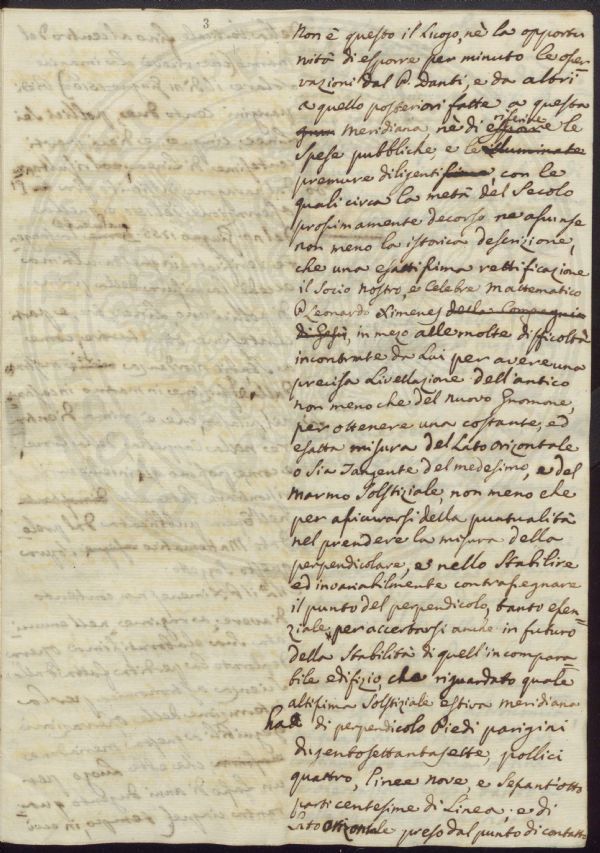 3
Non è questo il Luogo, nè la opportu
nità di esporre per minuto le osser
vazioni dal P. Danti, e da altri
a quello posteriori fatte a questa
Meridiana nè di riferire le
Spese pubbliche e le illuminate
premure diligentissime, con le
quali circa la metà del Secolo
prossimamente decorso ne assunse
non meno la istorica descrizione,
che una esattissima rettificazione
il Socio nostro, e Celebre Mattematico
P. Leonardo Ximenes della Compagnia
di Gesù, in mezo alle molte difficoltà
incontrate da Lui per avere una
precisa Livellazione dell'antico
non meno che del nuovo Gnomone,
per ottenere una costante, ed
esatta misura del Lato Orizontale
o sia Tangente del medesimo, e del
Marmo Solstiziale, non meno che
per assicurarsi della puntualità
nel prendere la misura della
perpendicolare, e nello Stabilire
ed invariabilmente contrassegnare
il punto del perpendicolo, tanto essen
ziale per accertarsi anche in futuro
della Stabilità di quell'incompara=
bile edifizio, che riguardato quale
altissima Solstiziale estiva meridiana
ha di perpendicolo Piedi parigini
dugentosettantasette, pollici
quattro, linee nove, e Sessantotto
parti centesime di Linea; e di
Lato Orizontale preso dal punto di contatto